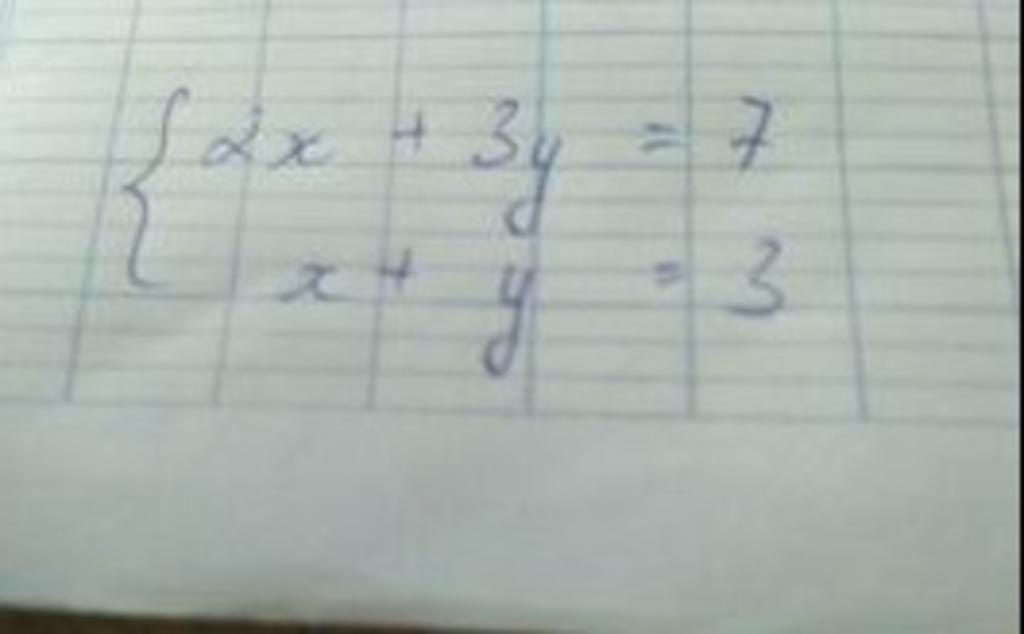 2x + 3y = 7
x + y = 3